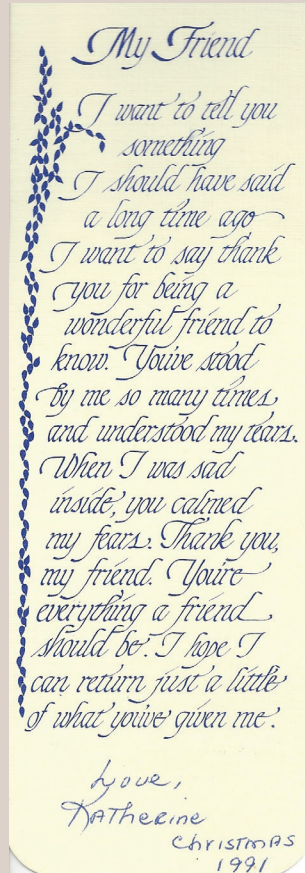 My Friend
I want to tell you
something
I should have said
a long time ago
I want to say thank
you for being a
wonderful friend to
know. You've stood
by me so many times
and understood my tears.
When I was sad
inside, you calmed
my fears. Thank you,
my friend. You're
everything a friend
should be. I hope I
can return just a little
of what you've given me.
Love,
Katherine
Christmas
1991